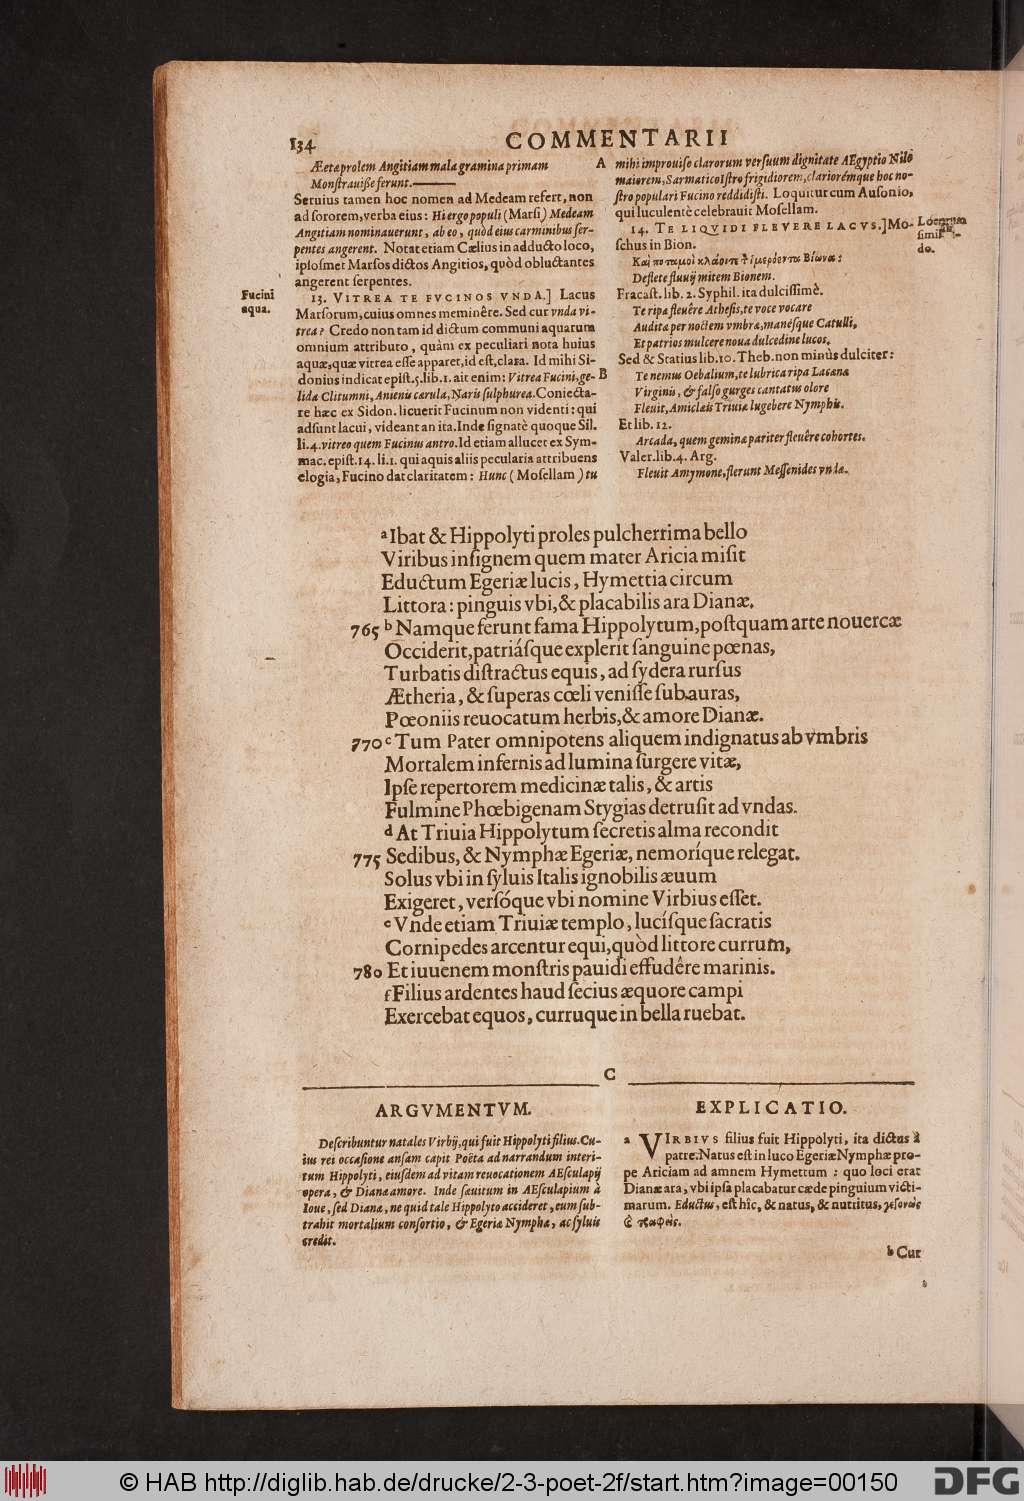 134
COMMENTARII
Æetæ prolem Angitiam mala gramina primam
Monstrauisse ferunt.
Seruius tamen hoc nomen ad Medeam refert, non
ad sororem, verba eius: Hi ergo populi (Marsi) Medeam
Angitiam nominauerunt, ab eo, quòd eius carminibus ser-
pentes angerent. Notat etiam Cælius in adducto loco,
ipsosmet Marsos dictos Angitios, quòd obluctantes
angerent serpentes.
Fucini
aqua.
13. VITREA TE FVCINOS VNDA.] Lacus
Marsorum, cuius omnes meminêre. Sed cur vnda vi-
trea? Credo non tam id dictum communi aquarum
omnium attributo, quàm ex peculiari nota huius
aquæ, quæ vitrea esse apparet, id est, clara. Id mihi Si-
donius indicat epist.5.lib.1. ait enim: Vitrea Fucini, ge-
lida Clitumni, Anienis cærula, Naris sulphurea. Coniecta-
re hæc ex Sidon. licuerit Fucinum non videnti: qui
adsunt lacui, videant an ita. Inde signatè quoque Sil.
li.4. vitreo quem Fucinus antro. Id etiam allucet ex Sym-
mac. epist.14. li.1. qui aquis aliis pecularia attribuens
elogia, Fucino dat claritatem: Hunc (Mosellam) tu
A
B
mihi improuiso clarorum versuum dignitate AEgyptio Nilo
maiorem, Sarmatico Istro frigidiorem, clariorémque hoc no-
stro populari Fucino reddidisti. Loquitur cum Ausonio,
qui luculentè celebrauit Mosellam.
14. TE LIQVIDI FLEVERE LACVS.] Mo-
schus in Bion.
Καὶ ποταμοὶ κλάοιτε τ ἱμερόεντα Βίωνα:
Deflete fluuij mitem Bionem.
Fracast. lib. 2. Syphil. ita dulcissimè.
Te ripa fleuêre Athesis, te voce vocare
Audita per noctem vmbræ, manésque Catulli,
Et patrios mulcere noua dulcedine lucos.
Sed & Statius lib.10. Theb. non minùs dulciter:
Te nemus Oebalium, te lubrica ripa Lacænæ
Virginis, & falso gurges cantatus olore
Fleuit, Amiclæis Triuiæ lugebere Nymphis.
Et lib. 12.
Arcada, quem geminæ pariter fleuêre cohortes.
Valer. lib.4. Arg.
Fleuit Amymone, flerunt Messenides vndæ.
do.
a Ibat & Hippolyti proles pulcherrima bello
Viribus insignem quem mater Aricia misit
Eductum Egeriæ lucis, Hymettia circum
Littora: pinguis vbi, & placabilis ara Dianæ.
765 b Namque ferunt fama Hippolytum, postquam arte nouercæ
Occiderit, patriásque explerit sanguine pœnas,
Turbatis distractus equis, ad sydera rursus
Ætheria, & superas cœli venisse sub auras,
Pœoniis reuocatum herbis, & amore Dianæ.
770 c Tum Pater omnipotens aliquem indignatus ab vmbris
Mortalem infernis ad lumina surgere vitæ,
Ipse repertorem medicinæ talis, & artis
Fulmine Phœbigenam Stygias detrusit ad vndas.
d At Triuia Hippolytum secretis alma recondit
775 Sedibus, & Nymphæ Egeriæ, nemoríque relegat.
Solus vbi in syluis Italis ignobilis æuum
Exigeret, versóque vbi nomine Virbius esset.
e Vnde etiam Triuiæ templo, lucísque sacratis
Cornipedes arcentur equi, quòd littore currum,
780 Et iuuenem monstris pauidi effudêre marinis.
f Filius ardentes haud secius æquore campi
Exercebat equos, curruque in bella ruebat.
C
ARGVMENTVM.
Describuntur natales Virbij, qui fuit Hippolyti filius. Cu-
ius rei occasione ansam capit Poëta ad narrandum interi-
tum Hippolyti, eiusdem ad vitam reuocationem AEsculapij
opera, & Dianæ amore. Inde sæuitum in AEsculapium à
Ioue, sed Diana, ne quid tale Hippolyto accideret, eum sub-
trahit mortalium consortio, & Egeriæ Nymphæ, ac syluis
credit.
EXPLICATIO.
a VIRBIVS filius fuit Hippolyti, ita dictus à
patre. Natus est in luco Egeriæ Nymphæ pro-
pe Ariciam ad amnem Hymettum: quo loci erat
Dianæ ara, vbi ipsa placabatur cæde pinguium victi-
marum. Eductus, est hîc, & natus, & nutritus, γεγονὼς
b Cur
© HAB http://diglib.hab.de/drucke/2-3-poet-2f/start.htm?image=00150
DFG